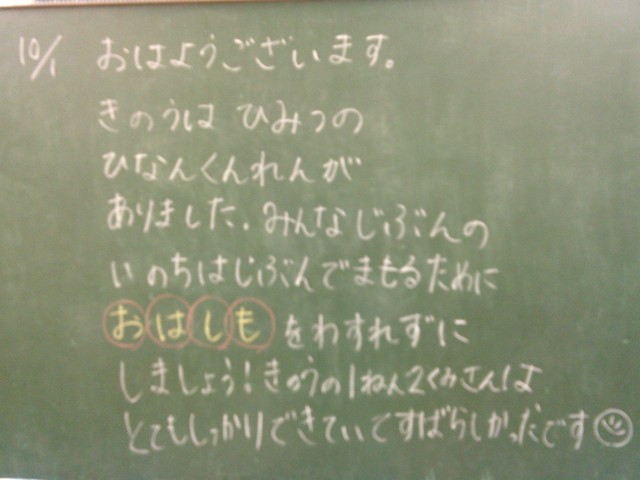 10/1 おはようございます。
きのうは ひみつの
ひなんくんれんが
ありました。みんなじぶんの
いのちはじぶんでまもるために
おはしもをわすれずに
しましょう!きのうの1ねん2くみさんは
とてもしっかりできていてすばらしかったです